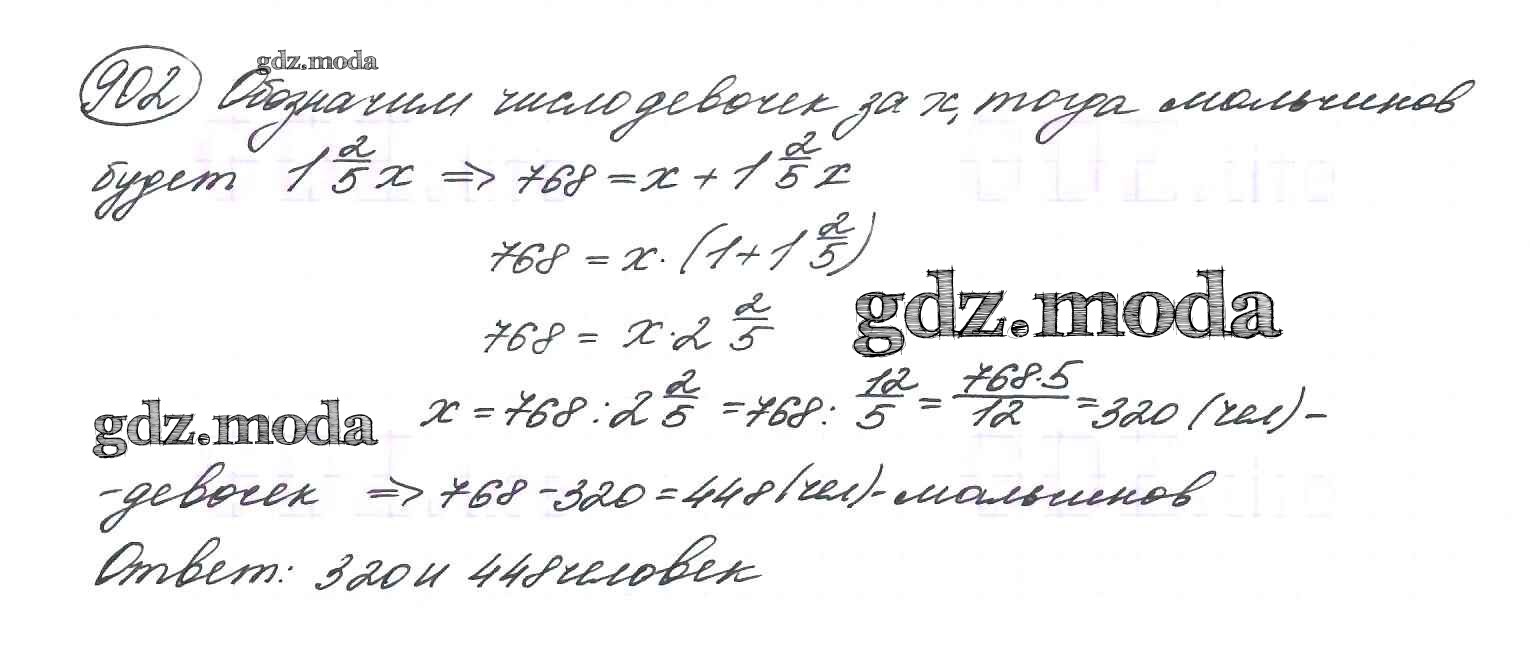 gdz.moda
902 Обозначим число девочек за x, тогда мальчиков
будет 1 2/5 x => 768 = x + 1 2/5 x
768 = x · (1 + 1 2/5)
768 = x · 2 2/5
gdz.moda
gdz.moda
x = 768 : 2 2/5 = 768 : 12/5 = 768·5/12 = 320 (чел) -
- девочек => 768 - 320 = 448 (чел) - мальчиков
Ответ: 320 и 448 человек